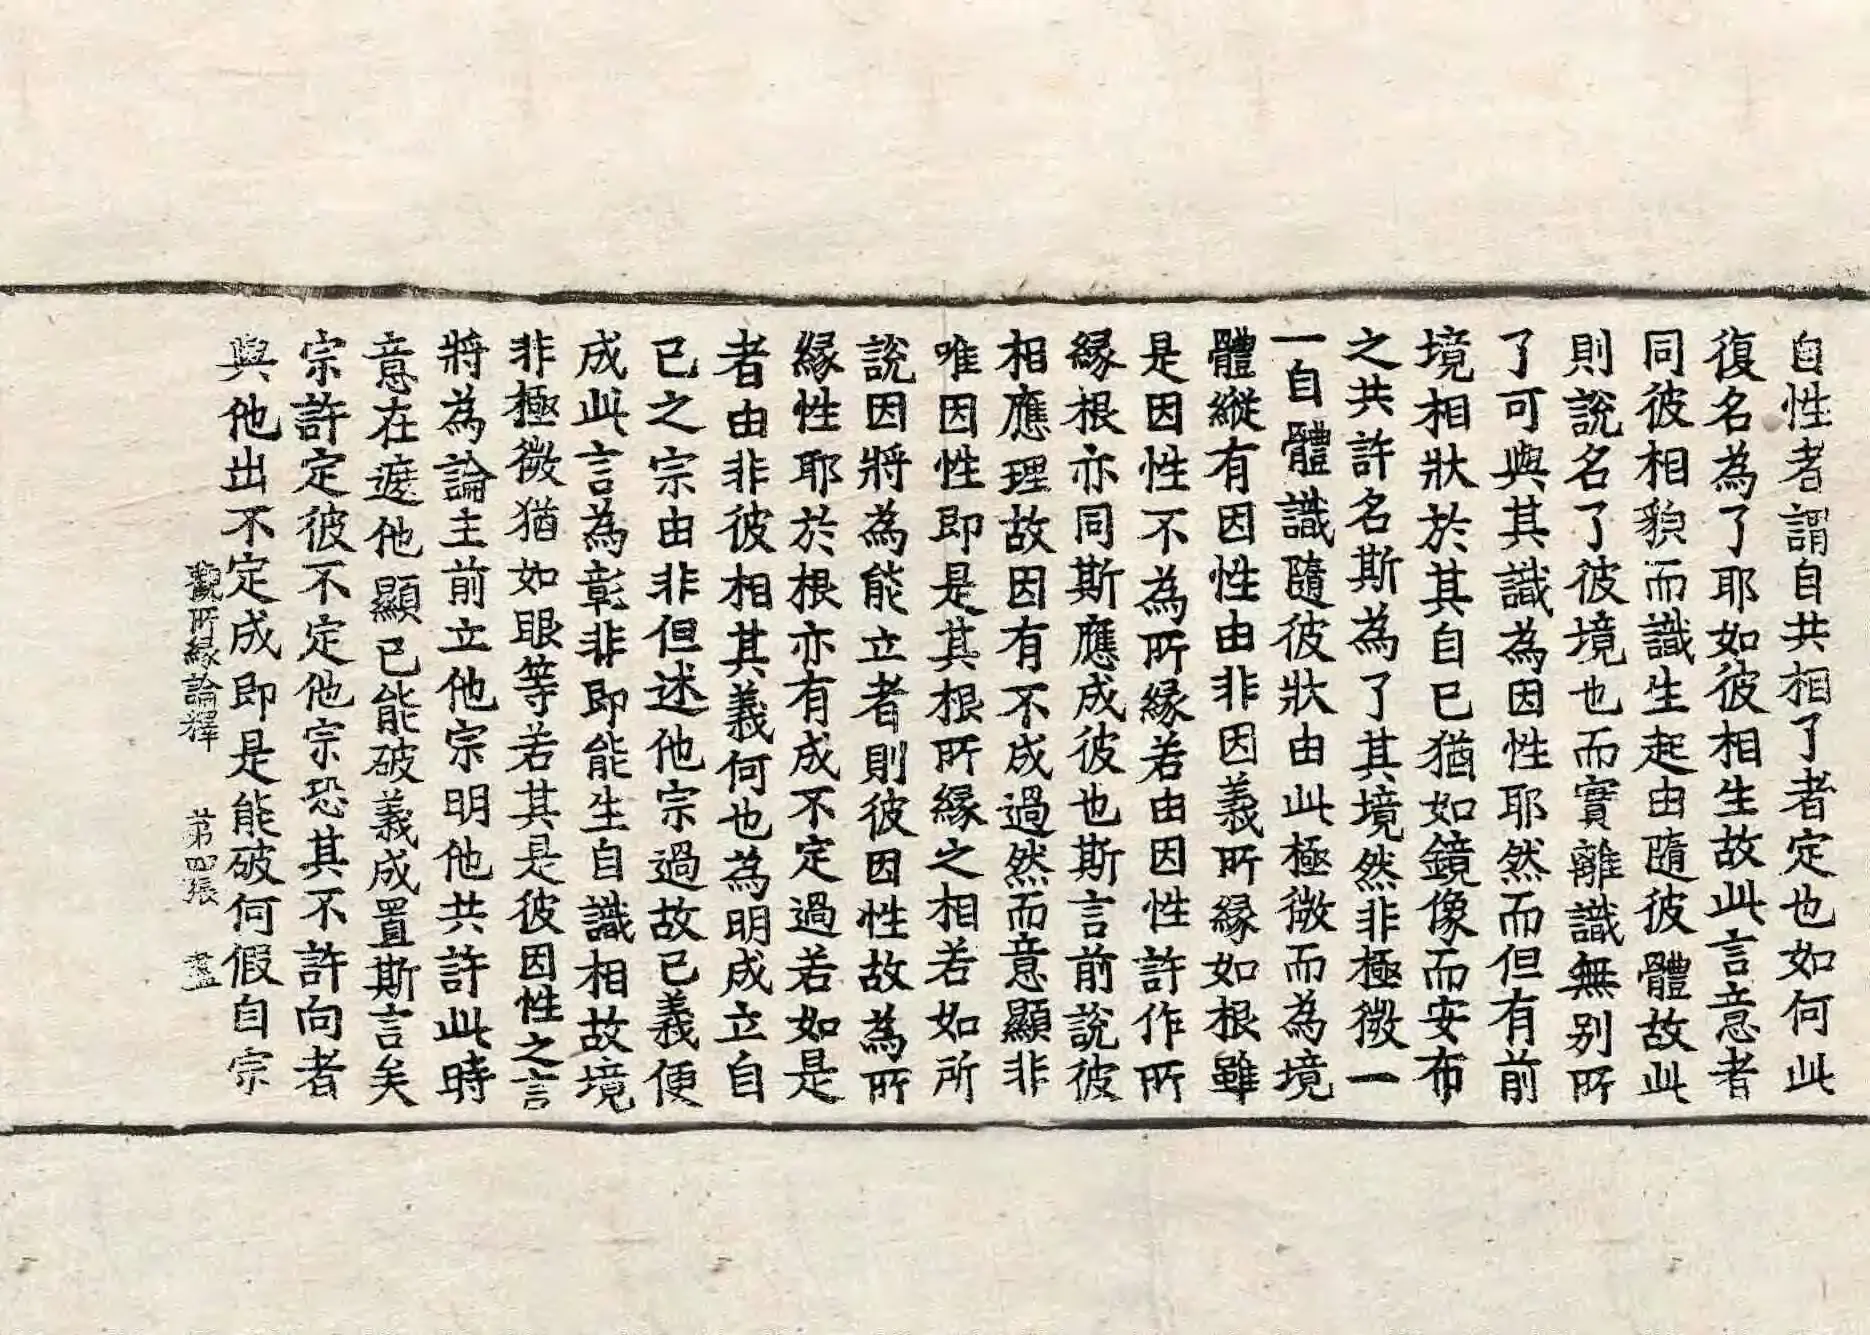 自性者謂自共相了者定也如何此
復名為了耶如彼相生故此言意者
同彼相貌而識生起由隨彼體故此
則說名了彼境也而實離識無別所
了可與其識為因性耶然而但有前
境相狀於其自已猶如鏡像而安布
之共許名斯為了其境然非極微一
一自體識隨彼狀由此極微而為境
體縱有因性由非因義所縁如根雖
是因性不為所縁若由因性許作所
縁根亦同斯應成彼也斯言前說彼
相應理故因有不成過然而意顯非
唯因性即是其根所縁之相若如所
說因將為能立者則彼因性故為所
縁性耶於根亦有成不定過若如是
者由非彼相其義何也為明成立自
已之宗由非但述他宗過故已義便
成此言為彰非即能生自識相故境
非極微猶如眼等若其是彼因性之言
將為論主前立他宗明他共許此時
意在遮他顯已能破義成置斯言矣
宗許定彼不定他宗恐其不許向者
與他出不定成即是能破何假自宗
觀所縁論釋 第四張 盡